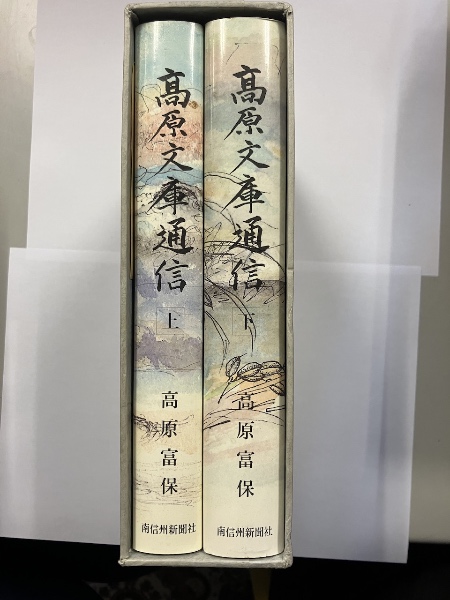 高原文庫通信
上
高原富保
南信州新聞社
高原文庫通信
下
高原富保
南信州新聞社